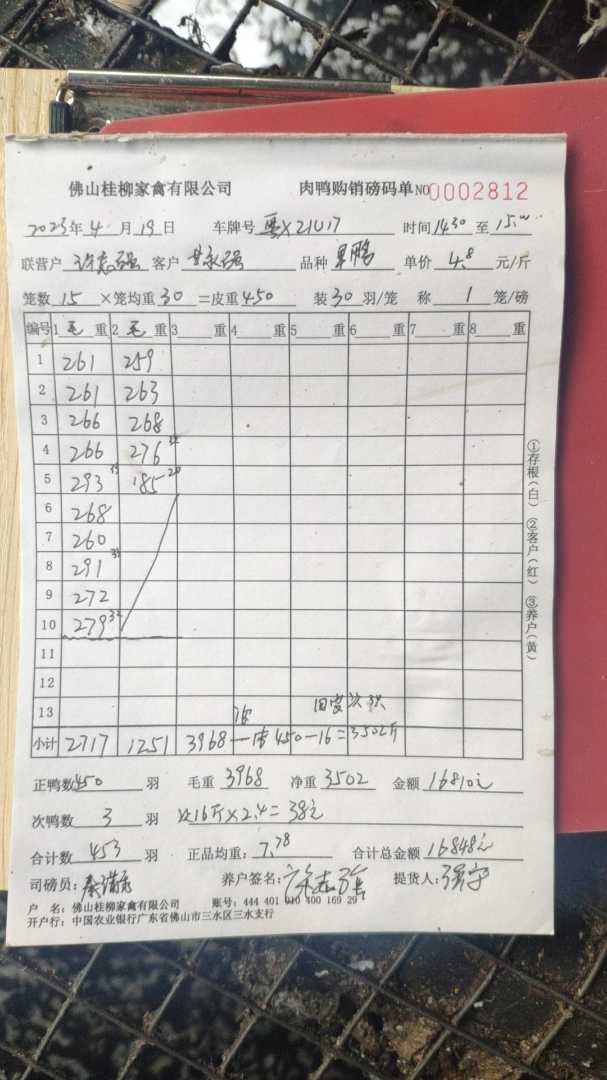 佛山桂柳家禽有限公司 肉鸭购销磅码单 NO 0002812
2023年 4 月 19 日 车牌号 粤X21U17 时间 1430 至 15.00
联营户 许志强 客户 品种 单价 4.8 元/斤
笼数 15 ×笼均重 30 =皮重 450 装 30 羽/笼 称 1 笼/磅
编号 1 毛 重 2 毛 重 3 重 4 重 5 重 6 重 7 重 8 重
1 261 259
2 261 263
3 266 268
4 266 276
5 293 185 20
6 268
7 260
8 291
9 272
10 279 32
11
12
13
小计 2717 1251 3968 — 皮 450 - 16 = 3502斤
正鸭数 450 羽 毛重 3968 净重 3502 金额 16810元
次鸭数 3 羽 次16斤×2.4=38元
合计数 453 羽 正品均重: 7.78 合计总金额 16848元
司磅员: 养户签名: 许志强 提货人:
户 名: 佛山桂柳家禽有限公司 账号: 444 401 010 400 169 29
开户行: 中国农业银行广东省佛山市三水区三水支行
①存根(白) ②客户(红) ③养户(黄)